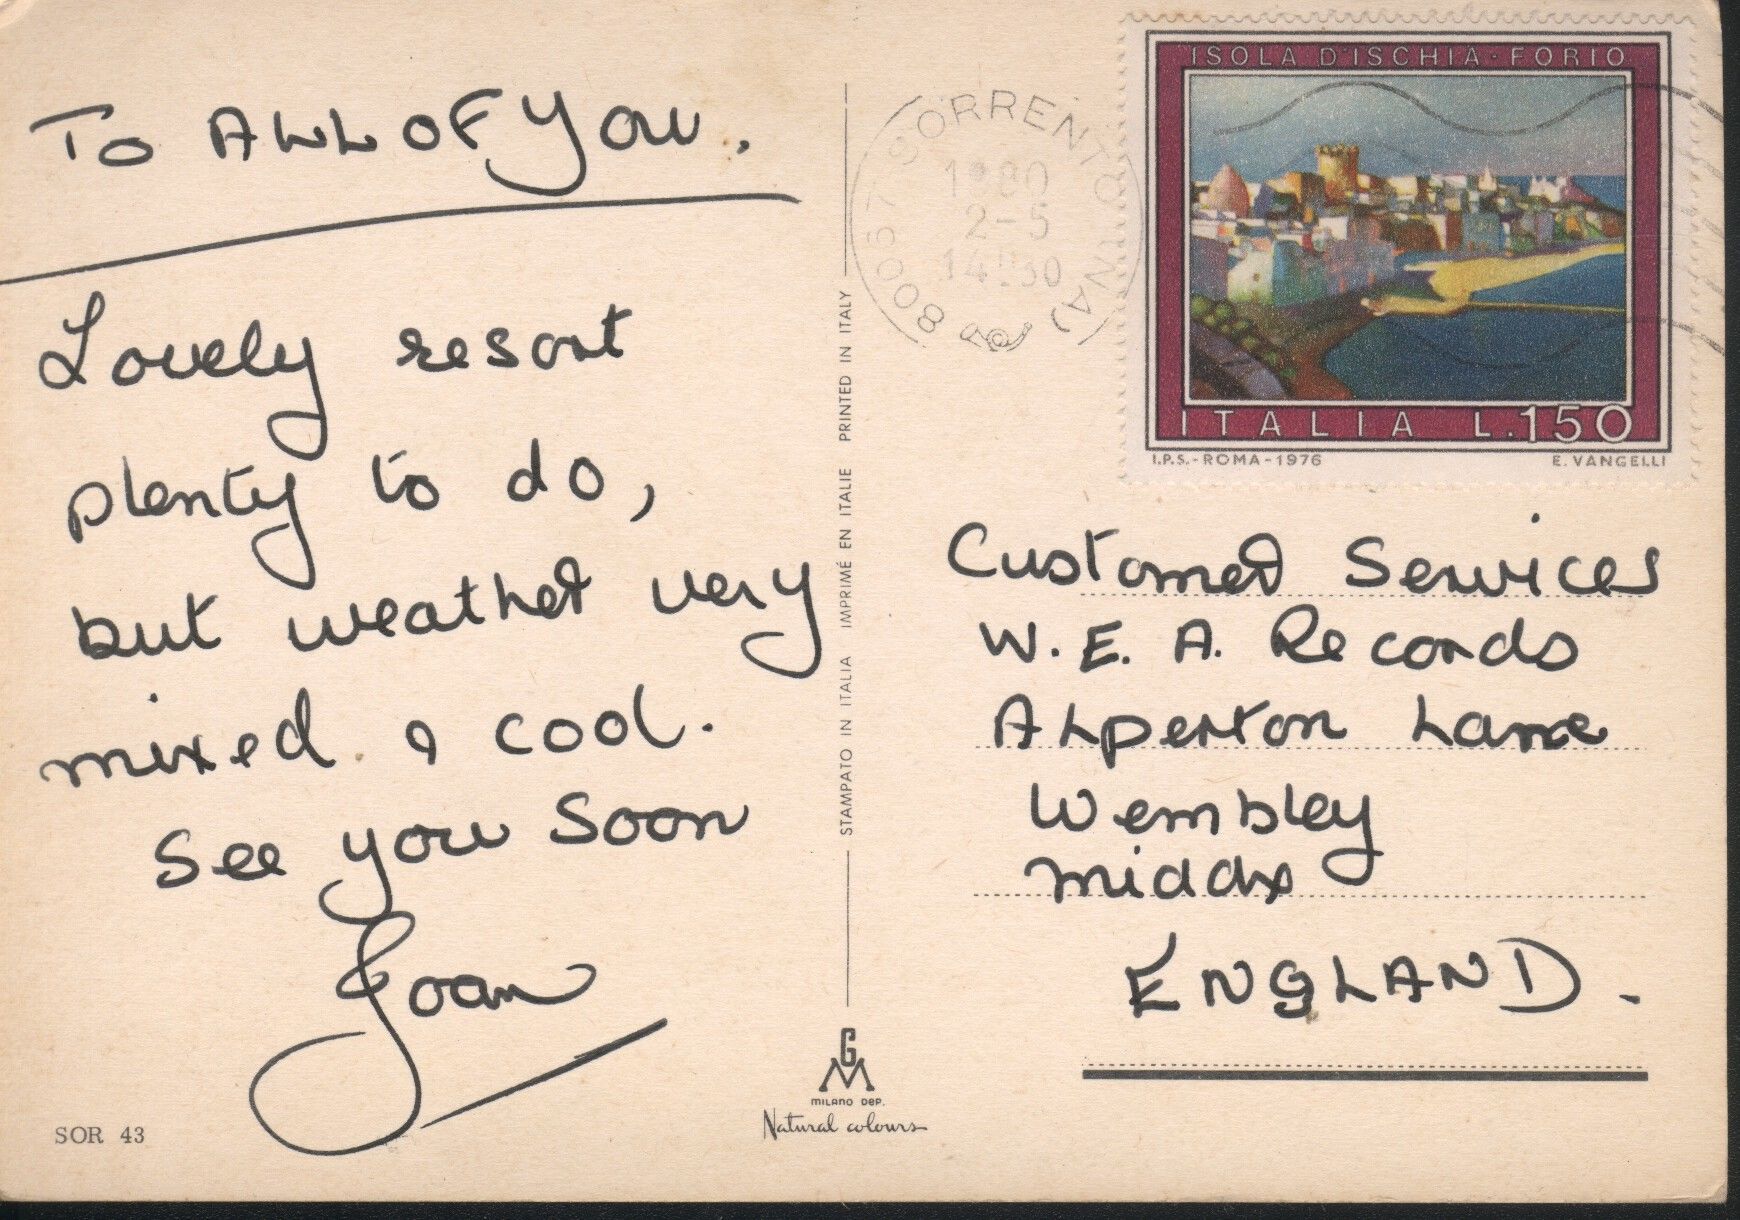 TO ALL OF YOU.
Lovely resort
plenty to do,
but weather very
mixed & cool.
See you soon
Joan
SOR 43
STAMPATO IN ITALIA IMPRIMÉ EN ITALIE PRINTED IN ITALY
GM
MILANO DEP.
Natural colours
80067 SORRENTO (NA)
1980
2-5
ISOLA D'ISCHIA - FORIO
ITALIA L.150
I.P.S. - ROMA - 1976 E. VANGELLI
Customer Services
W. E. A. Records
Alperton Lane
Wembley
Middx
ENGLAND.